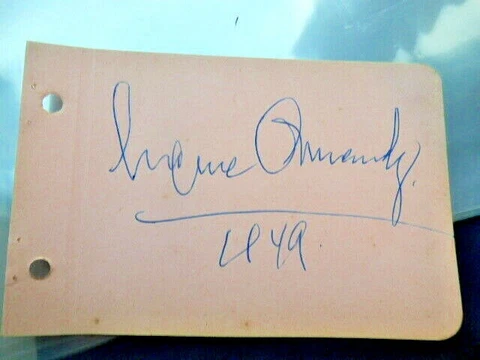 Eugene Ormandy.
1949.